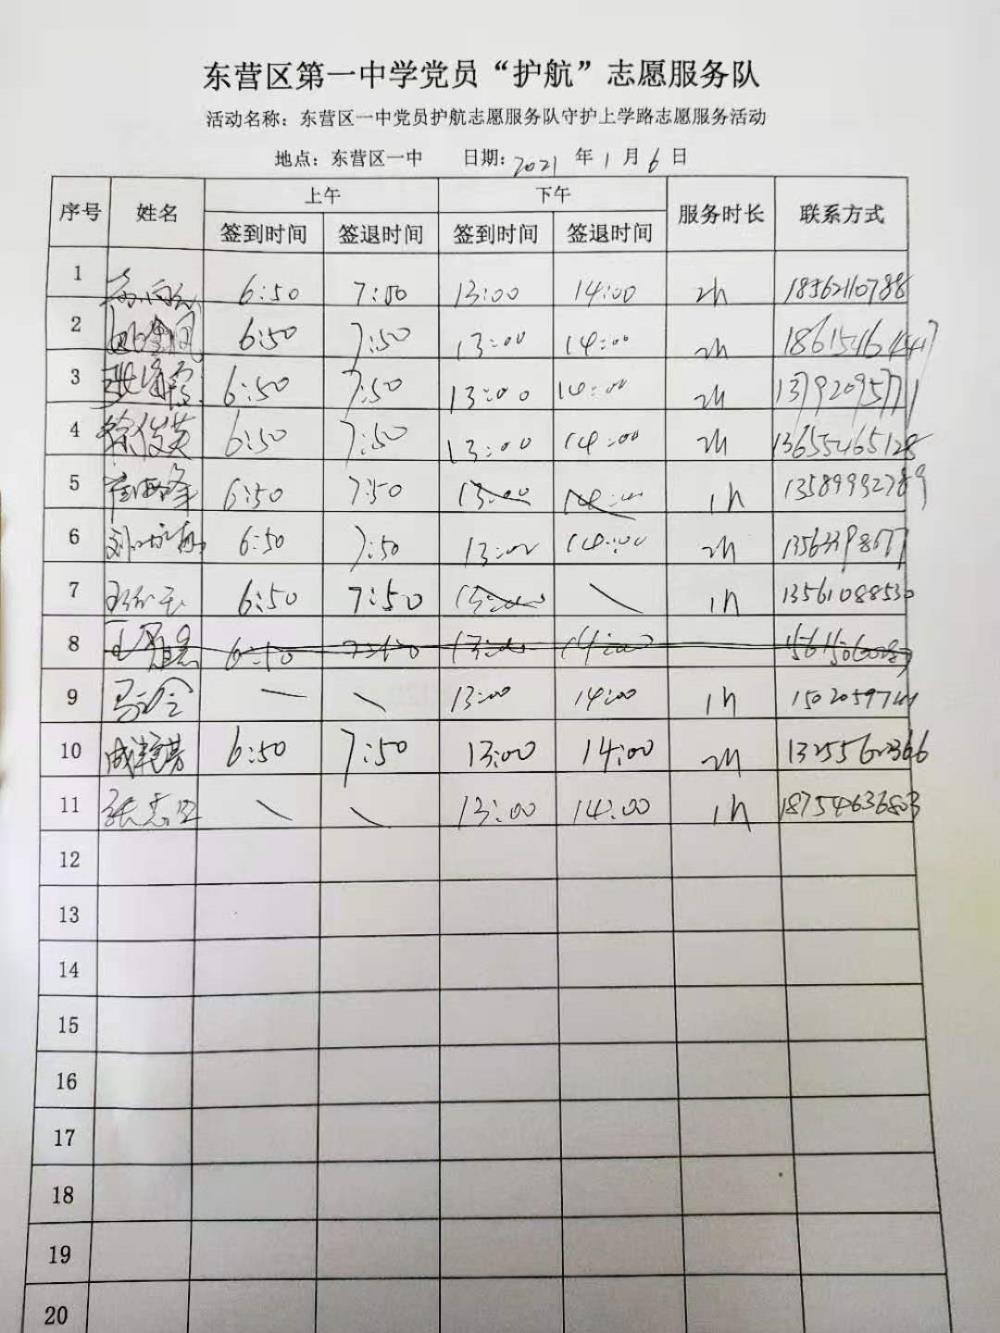 东营区第一中学党员“护航”志愿服务队
活动名称：东营区一中党员护航志愿服务队守护上学路志愿服务活动
地点：东营区一中 日期：2021 年 1 月 6 日
序号 姓名 上午 下午 服务时长 联系方式
签到时间 签退时间 签到时间 签退时间
1 6:50 7:50 13:00 14:00 2h 18562110788
2 6:50 7:50 13:00 14:00 2h
3 6:50 7:50 13:00 14:00 2h 13792095771
4 徐俊英 6:50 7:50 13:00 14:00 2h 13655465128
5 6:50 7:50 13:00 14:00 1h 13589992789
6 6:50 7:50 13:00 14:00 2h
7 6:50 7:50 13:00 \ 1h 13561088530
8 6:50 7:50 13:00 14:00
9 — \ 13:00 14:00 1h
10 成艳芳 6:50 7:50 13:00 14:00 2h
11 \ \ 13:00 14:00 1h 18754636803
12
13
14
15
16
17
18
19
20